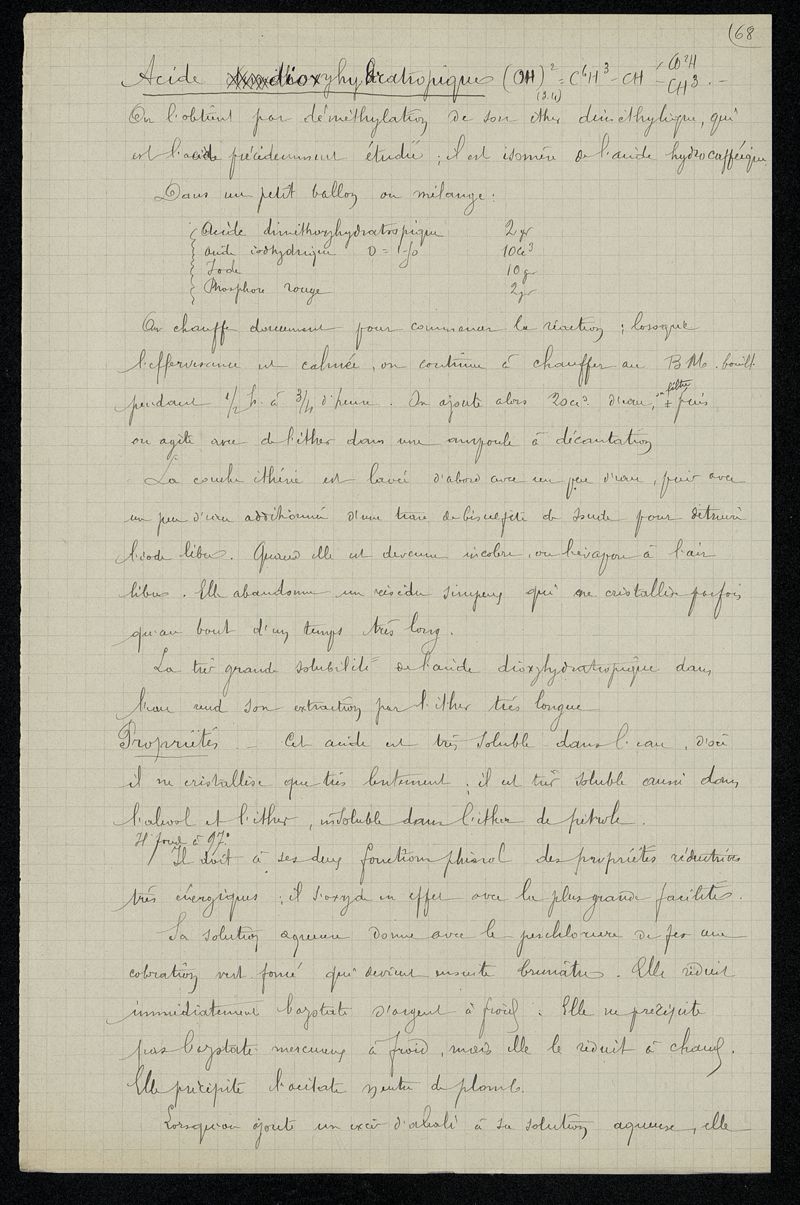 (68
Acide dioxyhydratropique (OH)² = C⁶H³ – CH – CO²H
CH³
(3.4)
On l'obtient par déméthylation de son ether diméthylique, qui
est l'acide précédemment étudié ; il est isomère de l'acide hydrocafféique
Dans un petit ballon on mélange :
Acide diméthoxyhydratropique 2 gr
acide iodhydrique D = 1.70 10cc³
Iode 10 gr
Phosphore rouge 2 gr
On chauffe doucement pour commencer la réaction ; lorsque
l'effervescence est calmée, on continue à chauffer au B M. bouill.
pendant 1/2 h. à 3/4 d'heure. On ajoute alors 20cc³ d'eau, on filtre + puis
on agite avec de l'éther dans une ampoule à décantation
La couche éthérée est lavée d'abord avec un peu d'eau, puis avec
un peu d'eau additionné d'une trace de bisulfite de soude pour détruire
l'iode libre. Quand elle est devenue incolore, on l'évapore à l'air
libre. Elle abandonne un résidu sirupeux qui ne cristallise parfois
qu'au bout d'un temps très long.
La très grande solubilité de l'acide dioxyhydratropique dans
l'eau rend son extraction par l'éther très longue
Propriétés. – Cet acide est très soluble dans l'eau, d'où
il ne cristallise que très lentement ; il est très soluble aussi dans
l'alcool et l'éther, insoluble dans l'ether de pétrole.
Il fond à 97°
Il doit à ses deux fonctions phénol des propriétés réductrices
très énergiques ; il s'oxyde en effet avec la plus grande facilité.
Sa solution aqueuse donne avec le perchlorure de fer une
coloration vert foncé qui devient ensuite brunâtre. Elle réduit
immédiatement l'azotate d'argent à froid. Elle ne précipite
pas l'azotate mercureux à froid, mais elle le réduit à chaud.
Elle précipite l'acétate neutre de plomb.
Lorsqu'on ajoute un excès d'alcali à sa solution aqueuse, elle